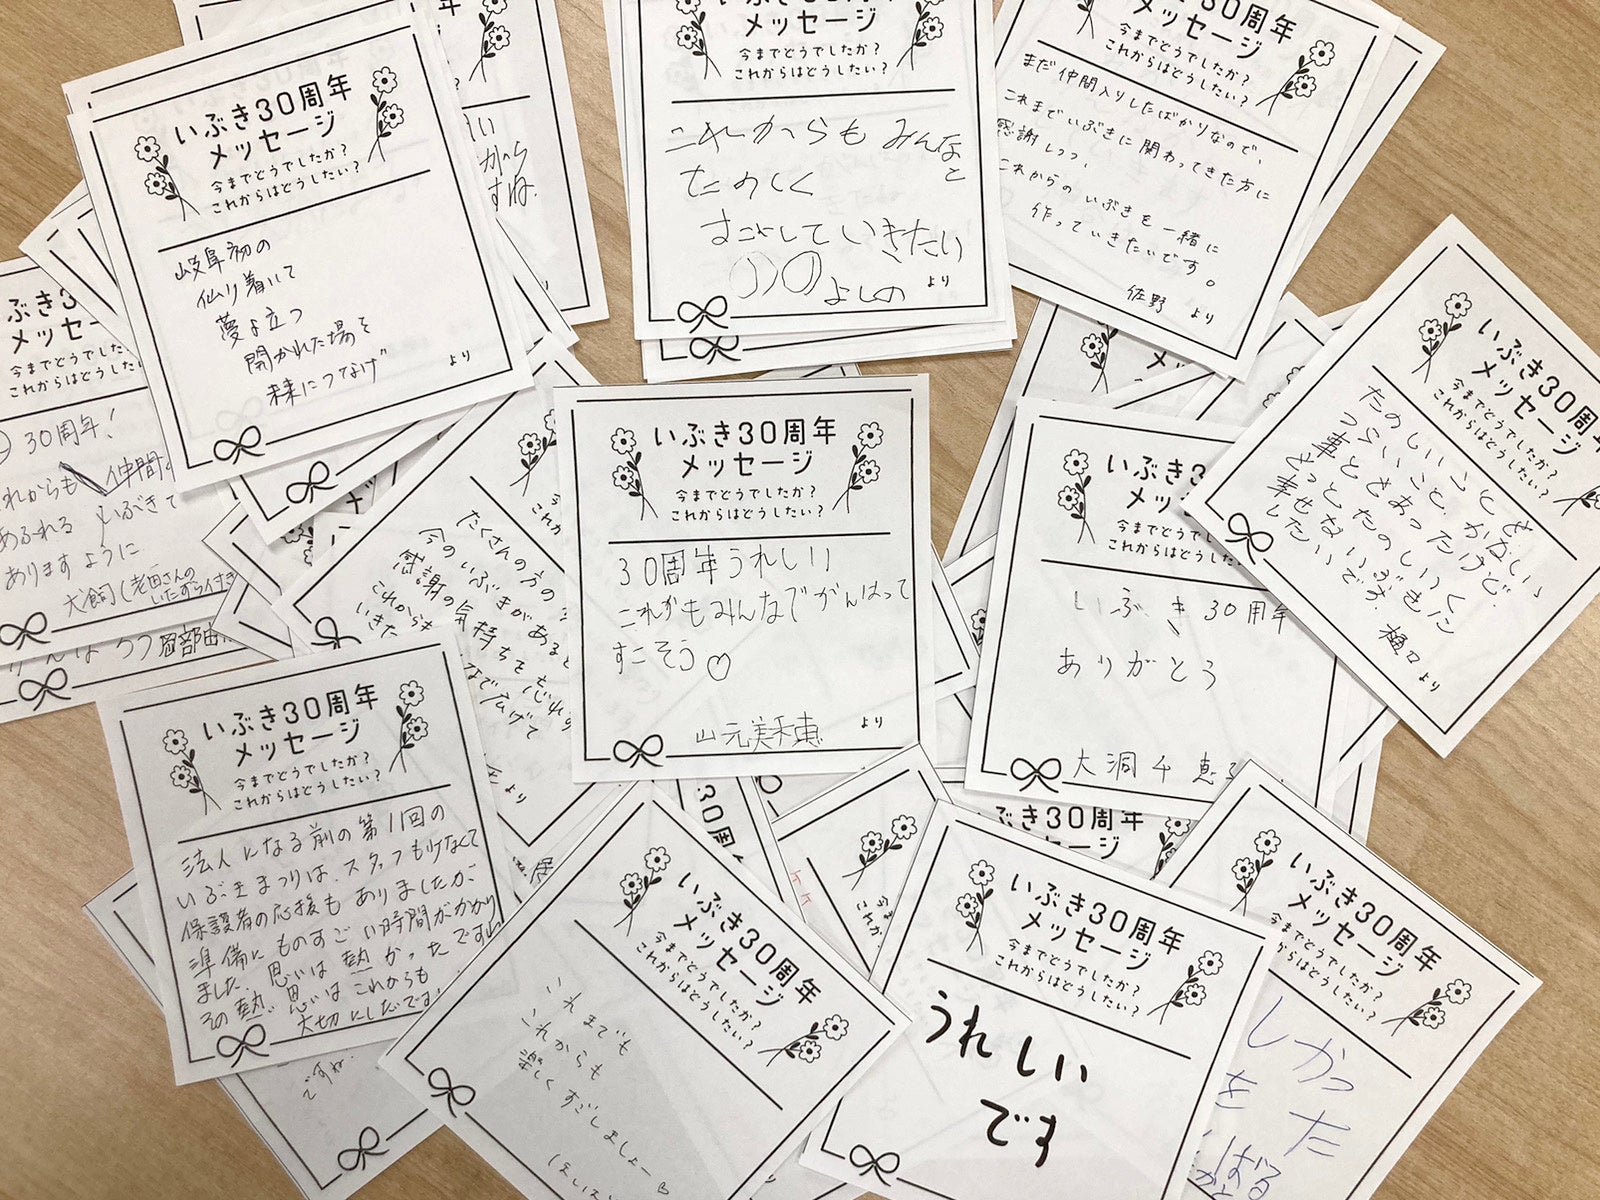 いぶき30周年
メッセージ
今までどうでしたか？
これからはどうしたい？
岐阜初の
仙り着いて
夢よ立つ
開かれた場を
未来につなげ
より
メッセージ
今までどうでしたか？
これからはどうしたい？
これからも みんな
と
たのしく
すごして いきたい
よしの より
メッセージ
今までどうでしたか？
これからはどうしたい？
まだ仲間入りしたばかりなので、
これまでいぶきに関わってきた方に
感謝しつつ、
これからの いぶきを一緒に
作っていきたいです。
佐野 より
いぶき30周年
メッセージ
今までどうでしたか？
これからはどうしたい？
たのしいことも
つらいこと、かなしい
事とかあったけど、
もっとたのしく
幸せないぶきに
したいです。
樋口 より
30周年！
これからも 仲間
あふれる いぶきで
ありますように
犬飼（老田さんの
いたずら付き
岡部由
たくさんの方の
今のいぶきがあると
感謝の気持ちを忘れ
これからも なで広げて
いきた
より
いぶき30周年
メッセージ
今までどうでしたか？
これからはどうしたい？
30周年うれしい
これかもみんなでがんはって
すこそう♡
山元美禾恵 より
いぶき30周
メッセ
今までどうでした
これからはどうし
いぶき30周年
ありがとう
大洞千恵
いぶき30周年
メッセージ
今までどうでしたか？
これからはどうしたい？
法人になる前の第11回の
いぶきまつりは、スタッフも少なくて
保護者の応援もありましたが、
準備にものすごい時間がかかり
ました。思いは熱かったです
その熱い思いはこれからも
大切にしたいです。
ですね。
いぶき30周年
メッセージ
今までどうでしたか？
これからはどうしたい？
これまでも
これからも
楽しくすごしましょー
いぶき30周年
メッセージ
今までどうでしたか？
これからはどうしたい？
うれしい
です
いぶき30周年
メッセージ
今までどうでしたか？
これからはどうしたい？
しかっ
た